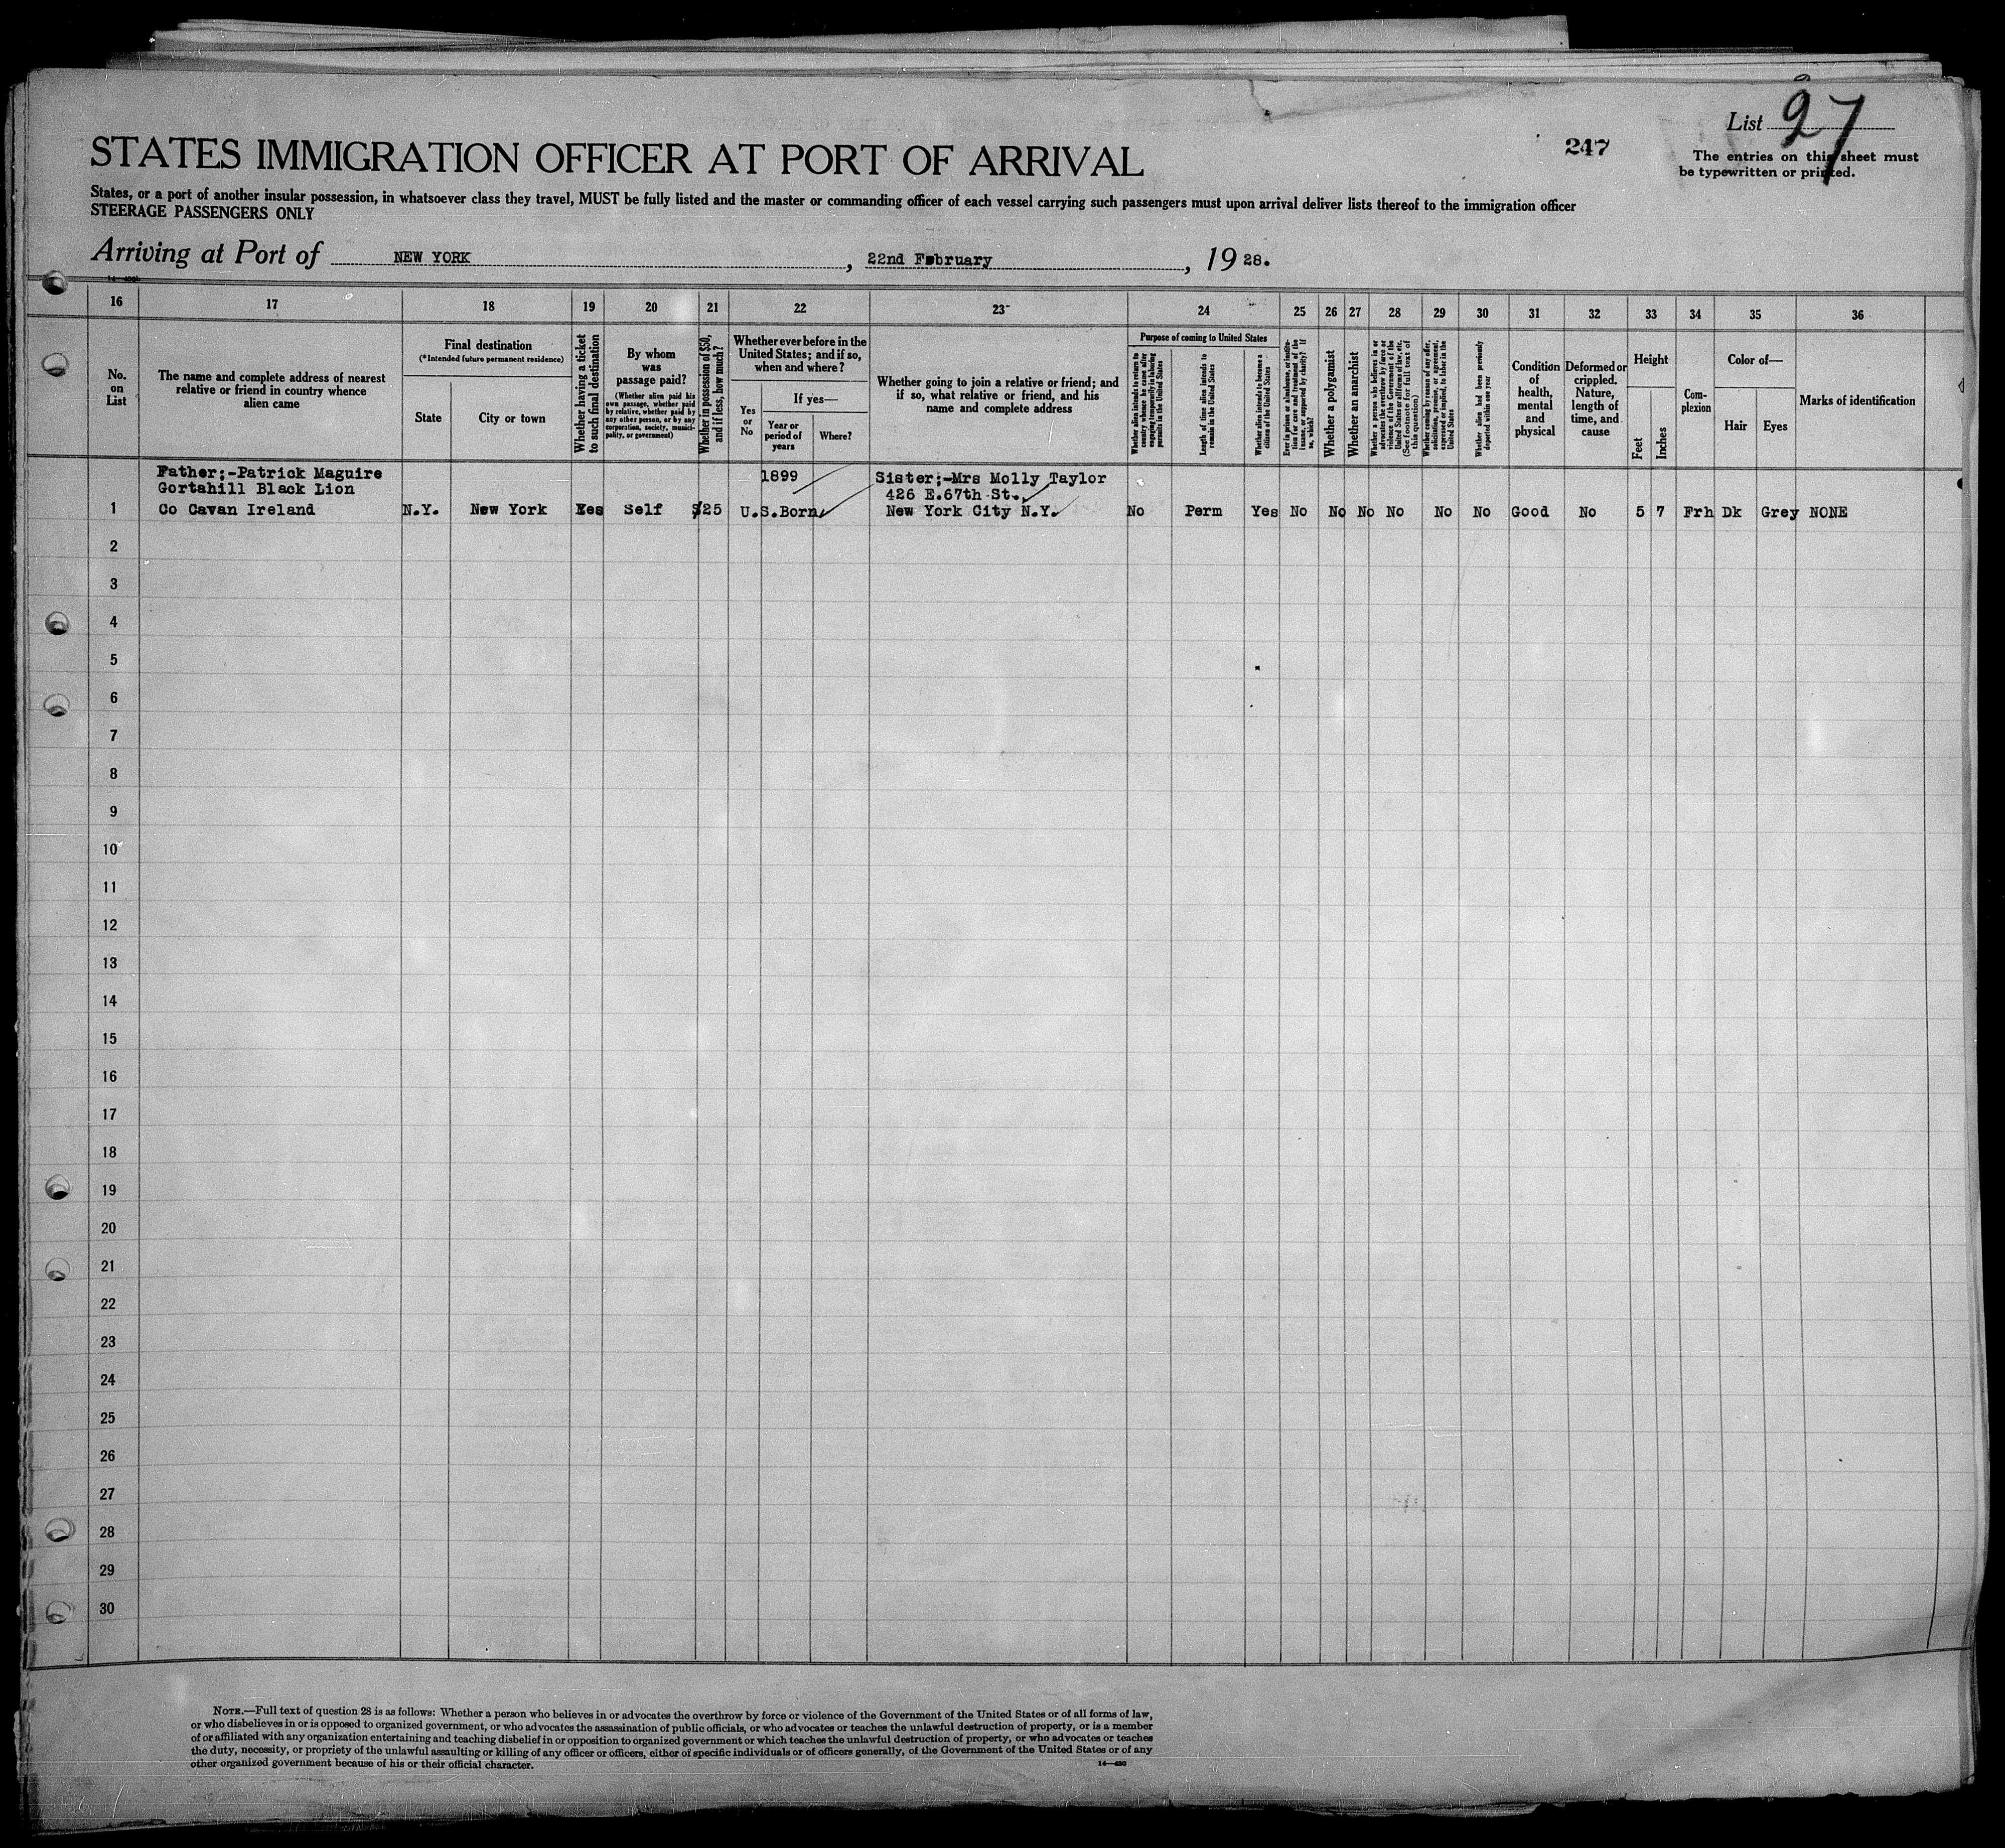 List 27
247
The entries on this sheet must
be typewritten or printed.
STATES IMMIGRATION OFFICER AT PORT OF ARRIVAL
States, or a port of another insular possession, in whatsoever class they travel, MUST be fully listed and the master or commanding officer of each vessel carrying such passengers must upon arrival deliver lists thereof to the immigration officer
STEERAGE PASSENGERS ONLY
Arriving at Port of NEW YORK, 22nd February, 1928.
16 17 18 19 20 21 22 23 24 25 26 27 28 29 30 31 32 33 34 35 36
No.
on
List
The name and complete address of nearest
relative or friend in country whence
alien came
Final destination
(*Intended future permanent residence)
State
City or town
Whether having a ticket
to such final destination
By whom
was
passage paid?
(Whether alien paid his
own passage, whether paid
by relative, whether paid by
any other person, or by any
corporation, society, munici-
pality, or government)
Whether in possession of $50,
and if less, how much?
Whether ever before in the
United States; and if so,
when and where?
Yes
or
No
If yes—
Year or
period of
years
Where?
Whether going to join a relative or friend; and
if so, what relative or friend, and his
name and complete address
Purpose of coming to United States
Whether alien intends to return to
country whence he came after
engaging temporarily in laboring
pursuits in the United States
Length of time alien intends to
remain in the United States
Whether alien intends to become a
citizen of the United States
Ever in prison or almshouse, or institu-
tion for care and treatment of the
insane, or supported by charity? If
so, which?
Whether a polygamist
Whether an anarchist
Whether a person who believes in or
advocates the overthrow by force or
violence of the Government of the
United States or all forms of law, etc.
(See footnote for full text of
this question)
Whether coming by reason of any offer,
solicitation, promise, or agreement,
expressed or implied, to labor in the
United States
Whether alien had been previously
deported within one year
Condition
of
health,
mental
and
physical
Deformed or
crippled.
Nature,
length of
time, and
cause
Height
Feet
Inches
Com-
plexion
Color of—
Hair
Eyes
Marks of identification
Father;-Patrick Maguire 1899 Sister;-Mrs Molly Taylor
Gortahill Black Lion 426 E.67th St.
1 Co Cavan Ireland N.Y. New York Yes Self $25 U.S.Born New York City N.Y. No Perm Yes No No No No No No Good No 5 7 Frh Dk Grey NONE
2
3
4
5
6
7
8
9
10
11
12
13
14
15
16
17
18
19
20
21
22
23
24
25
26
27
28
29
30
NOTE.—Full text of question 28 is as follows: Whether a person who believes in or advocates the overthrow by force or violence of the Government of the United States or of all forms of law,
or who disbelieves in or is opposed to organized government, or who advocates the assassination of public officials, or who advocates or teaches the unlawful destruction of property, or is a member
of or affiliated with any organization entertaining and teaching disbelief in or opposition to organized government or which teaches the unlawful destruction of property, or who advocates or teaches
the duty, necessity, or propriety of the unlawful assaulting or killing of any officer or officers, either of specific individuals or of officers generally, of the Government of the United States or of any
other organized government because of his or their official character.
14—480